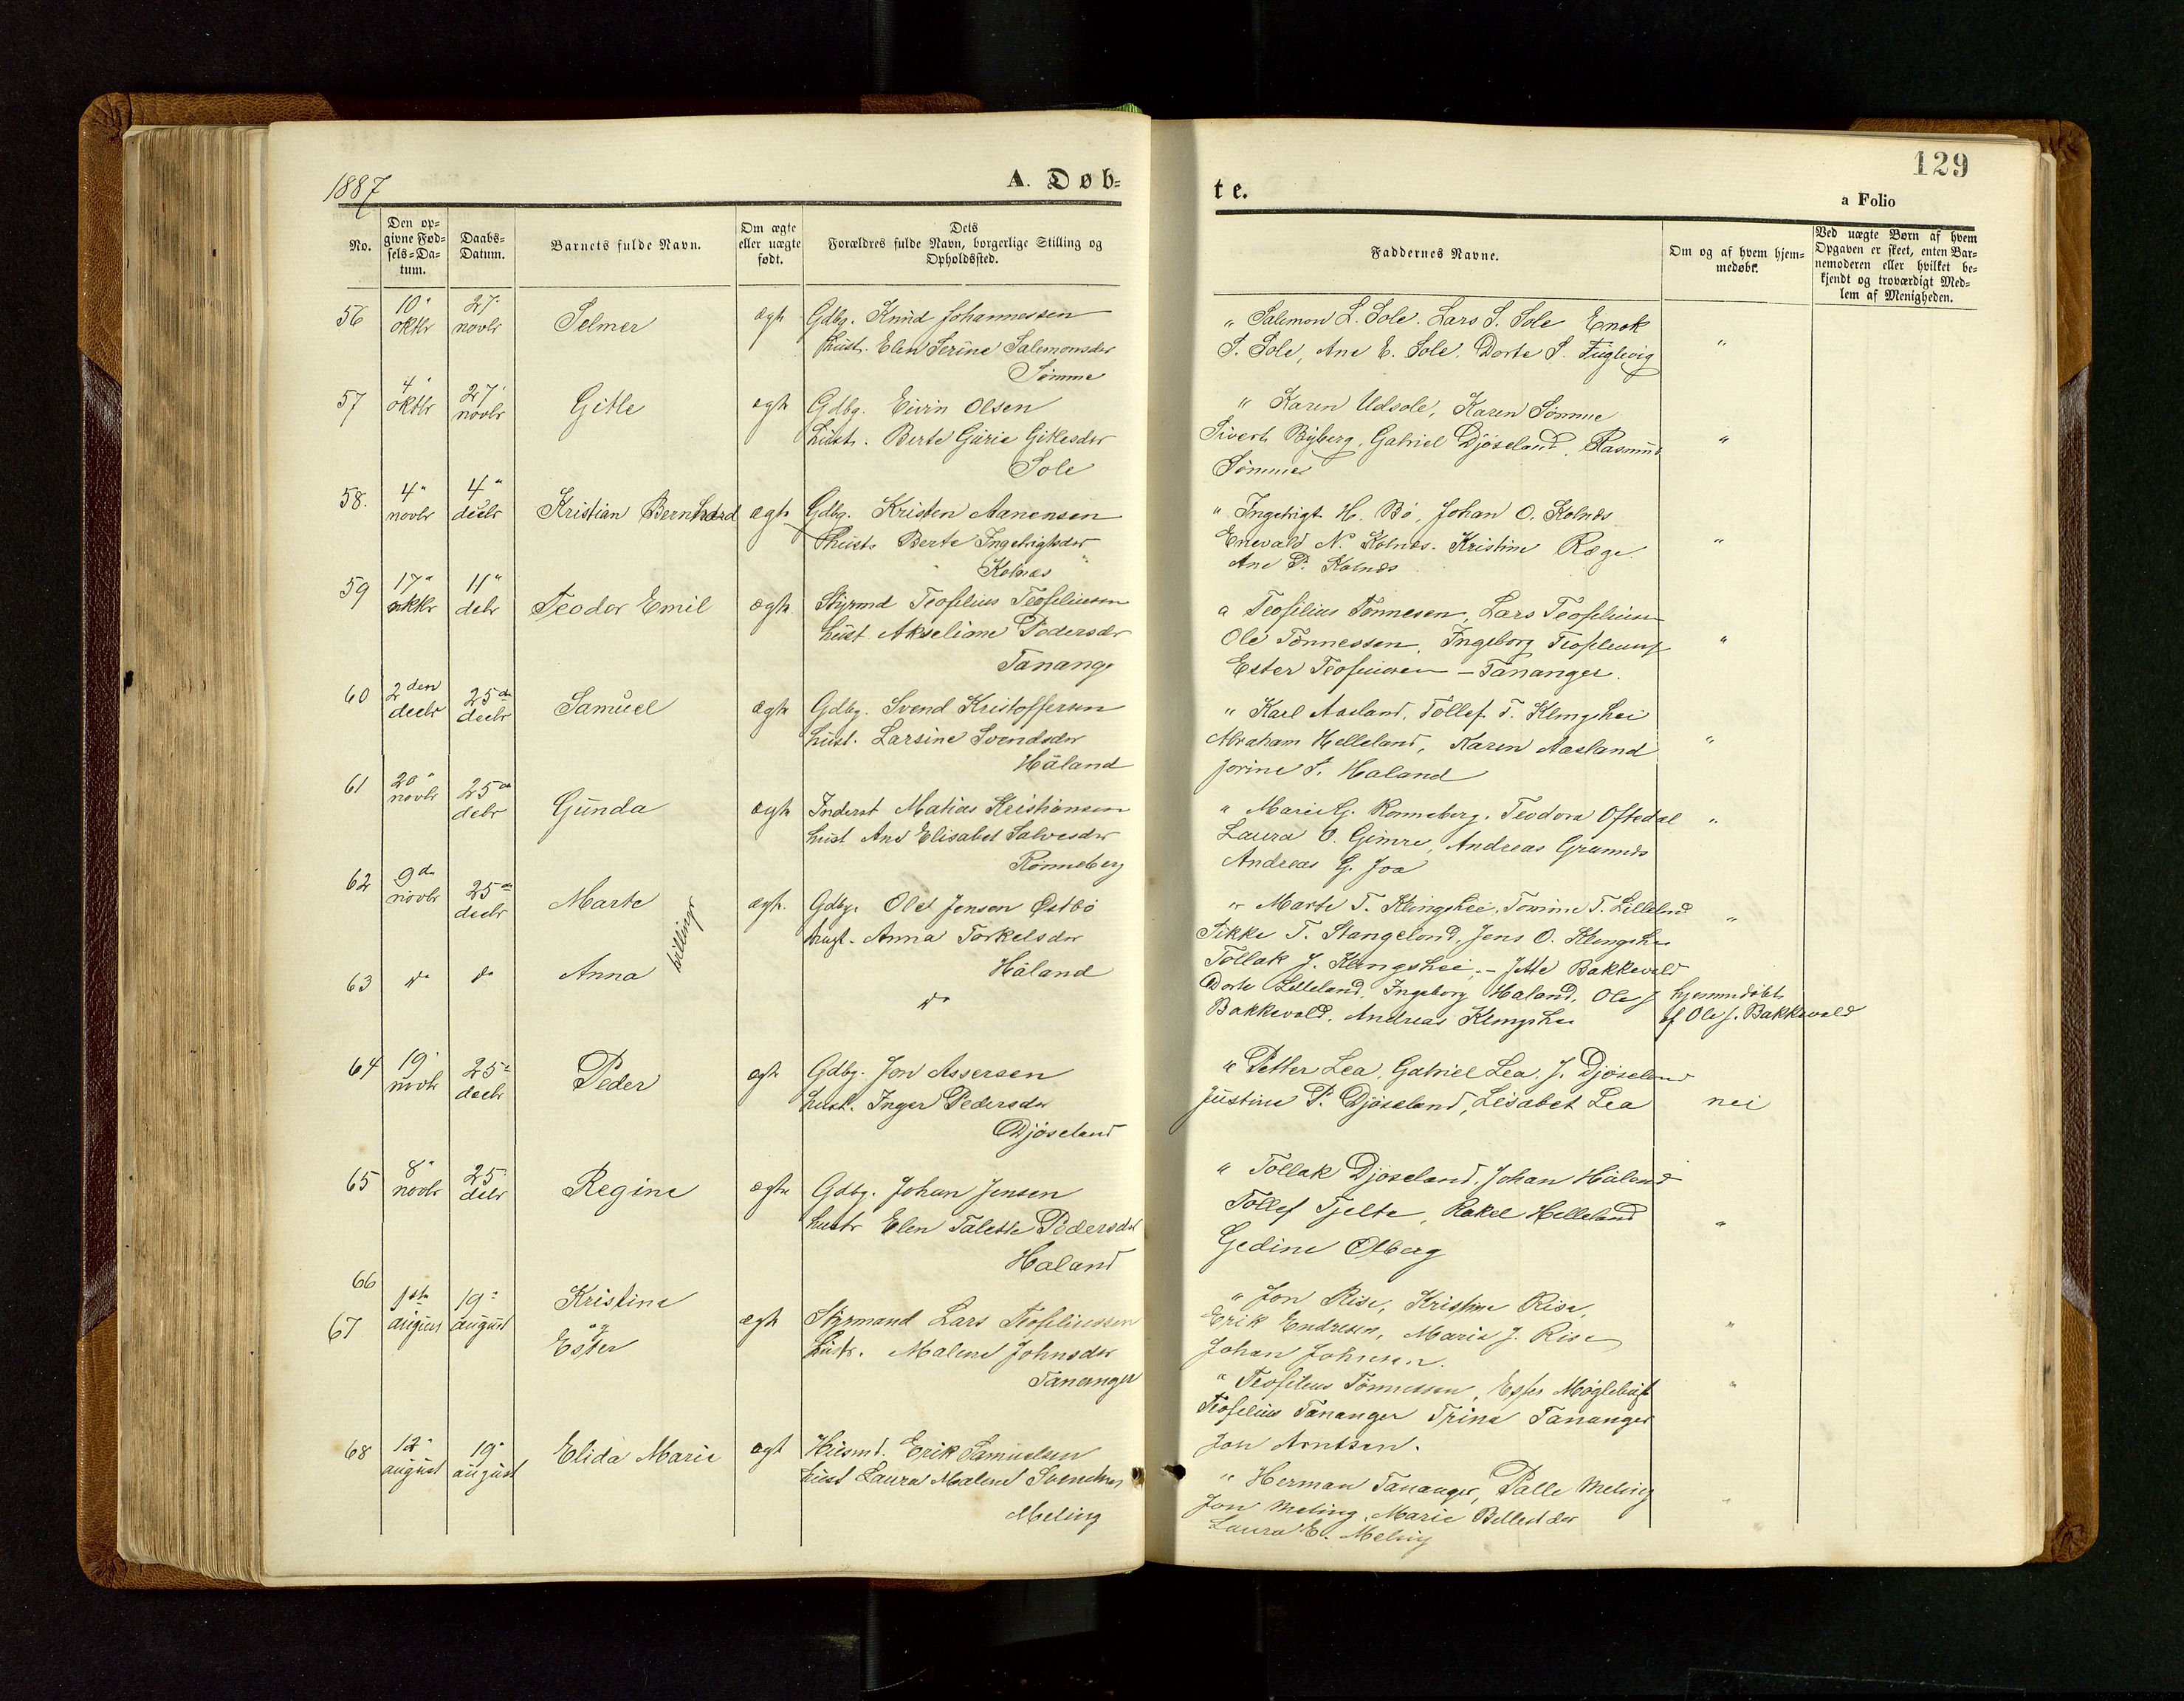 1887
A. Døb=
te.
129
a Folio
No.
Den op=
givne Fød=
sels=Da=
tum.
Daabs=
Datum.
Barnets fulde Navn.
Om ægte
eller uægte
født.
Dets
Forældres fulde Navn, borgerlige Stilling og
Opholdssted.
Faddernes Navne.
Om og af hvem hjem=
medøbt.
Ved uægte Børn af hvem
Opgaven er skeet, enten Bar=
nemoderen eller hvilket be=
kjendt og troværdigt Med=
lem af Menigheden.
56 10" oktbr 27" novbr Selmer ægte Gdbg. Knud Johannessen
hust. Elen Serine Salemonsdr
Sömme
" Salemon L. Sole. Lars S. Sole Enok
S. Sole, Ane E. Sole. Dorte S. Fuglevig "
57 4" oktbr 27" novbr Gitle ægte Gdbg. Eivin Olsen
hustr. Berte Gurie Gitlesdr
Sole
" Karen Udsole, Karen Sömme
Sivert Byberg, Gabriel Djöseland. Rasmus "
Sömme
58. 4" novbr 4" decbr Kristian Bernhard ægte Gdbg. Kristen Aanensen
hustr Berte Ingebrigtsdr
Kolnes
" Ingebrigt H. Bö, Johan O. Kolnes
Enevald N. Kolnes. Kristine Ræge "
Ane P. Kolnes
59 17" oktbr 11" debr Teodor Emil ægte Styrmd Teofilius Teofiliusen
hust Akseliane Pedersdr
Tanang
a Teofilius Tönnesen, Lars Teofiliusen
Ole Tönnessen, Ingeborg "
Ester – Tananger.
60 2den decbr 25de decbr Samuel ægte Gdbg. Svend Kristoffersen
hust. Larsine Svendsdr
Håland
" Karl Aasland, Tollef T. Klingshei
Abraham Helleland, Karen Aasland "
Jorine T. Haland
61 20" novbr 25de debr Gunda ægte Inderst Matias Kristiansen
hust Ane Elisabet Salvesdr
Rönneberg
" Marie G. Ronneberg, Teodora Oftedal "
Laura O. Gimre, Andreas
Andreas G. Joa
62 9de novbr 25de decbr Marte ægte. Gdbgr Ole Jensen Østbö
hust. Anna Torkelsdr
Håland
tvillinger
" Marte T. Klingshei, Tomine T. Lilleland "
Sikke T. Stangeland, Jens O. Klingshei
63 do do Anna do
Tollak J. Klingshei. – Jette Bakkevold
Dorte Lilleland, Ingeborg Haland, Ole J. hjemmedöbt
Bakkevold. Andreas Klingshei af Ole J. Bakkevold
64 19" novbr 25" decbr Peder ægte Gdbg. Jon Assersen
hust. Inger Pedersdr
Djöseland
" Petter Lea, Gabriel Lea, J. Djöseland
Justine P. Djöseland, Lisabet Lea nei
65 8" novbr 25 debr Regine ægte Gdbg. Johan Jensen
hustr Elen Talette Pedersdr
Haland
" Tollak Djöseland, Johan Håland
Tollef Tjelta, Rakel Helleland "
Gedine Olberg
66 Kristine
67 1ste august 19" august og Ester ægte Styrmand Lars Teofiliussen
hustr. Malene Johnsdr
Tananger
" Jon Risa, Kristine Risa,
Erik Endresen, Maria J. Risa "
Johan Johnsen.
" Teofilius Tönnessen, Ester "
Teofilius Tananger Trina Tananger
Jon Arntsen.
68 12" august 19" august Elida Marie ægt Husmd. Erik Samuelsen
hust Laura Malene
Meling
" Herman Tananger, Palle Meling
Jon Meling, Marie "
Laura E. Meling